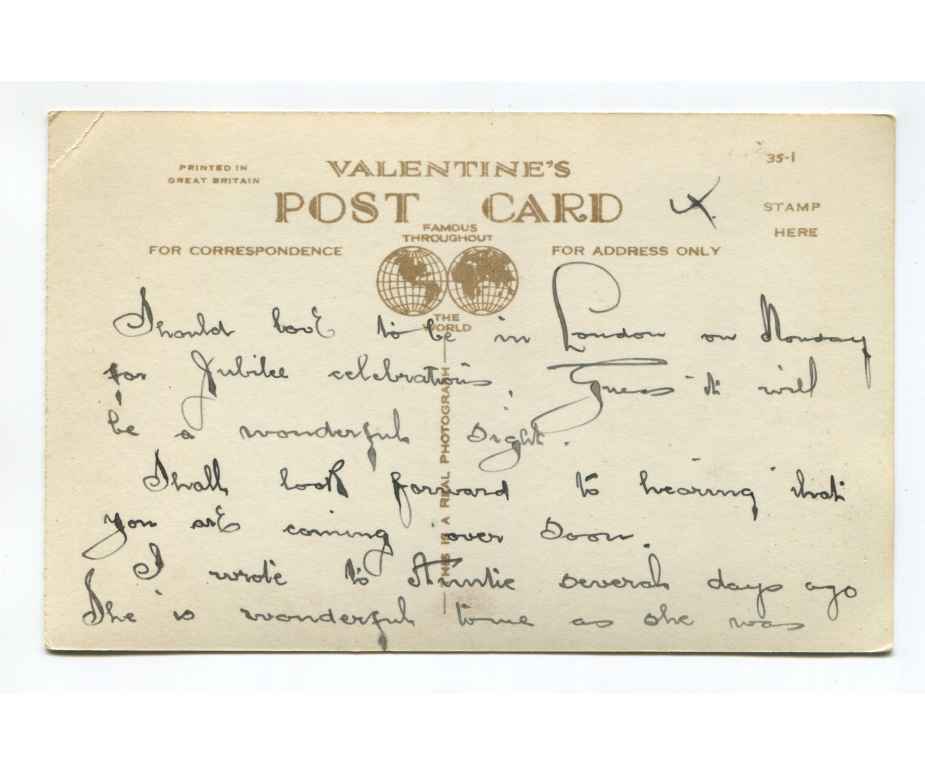 35-1
PRINTED IN
GREAT BRITAIN
VALENTINE'S
POST CARD
STAMP
HERE
FAMOUS
THROUGHOUT
FOR CORRESPONDENCE
FOR ADDRESS ONLY
THE
WORLD
THIS IS A REAL PHOTOGRAPH
Should love to be in London on Monday
for Jubilee celebrations. Guess it will
be a wonderful sight.
Shall look forward to hearing that
you are coming over soon.
I wrote to Auntie several days ago
She is wonderful to me as she was